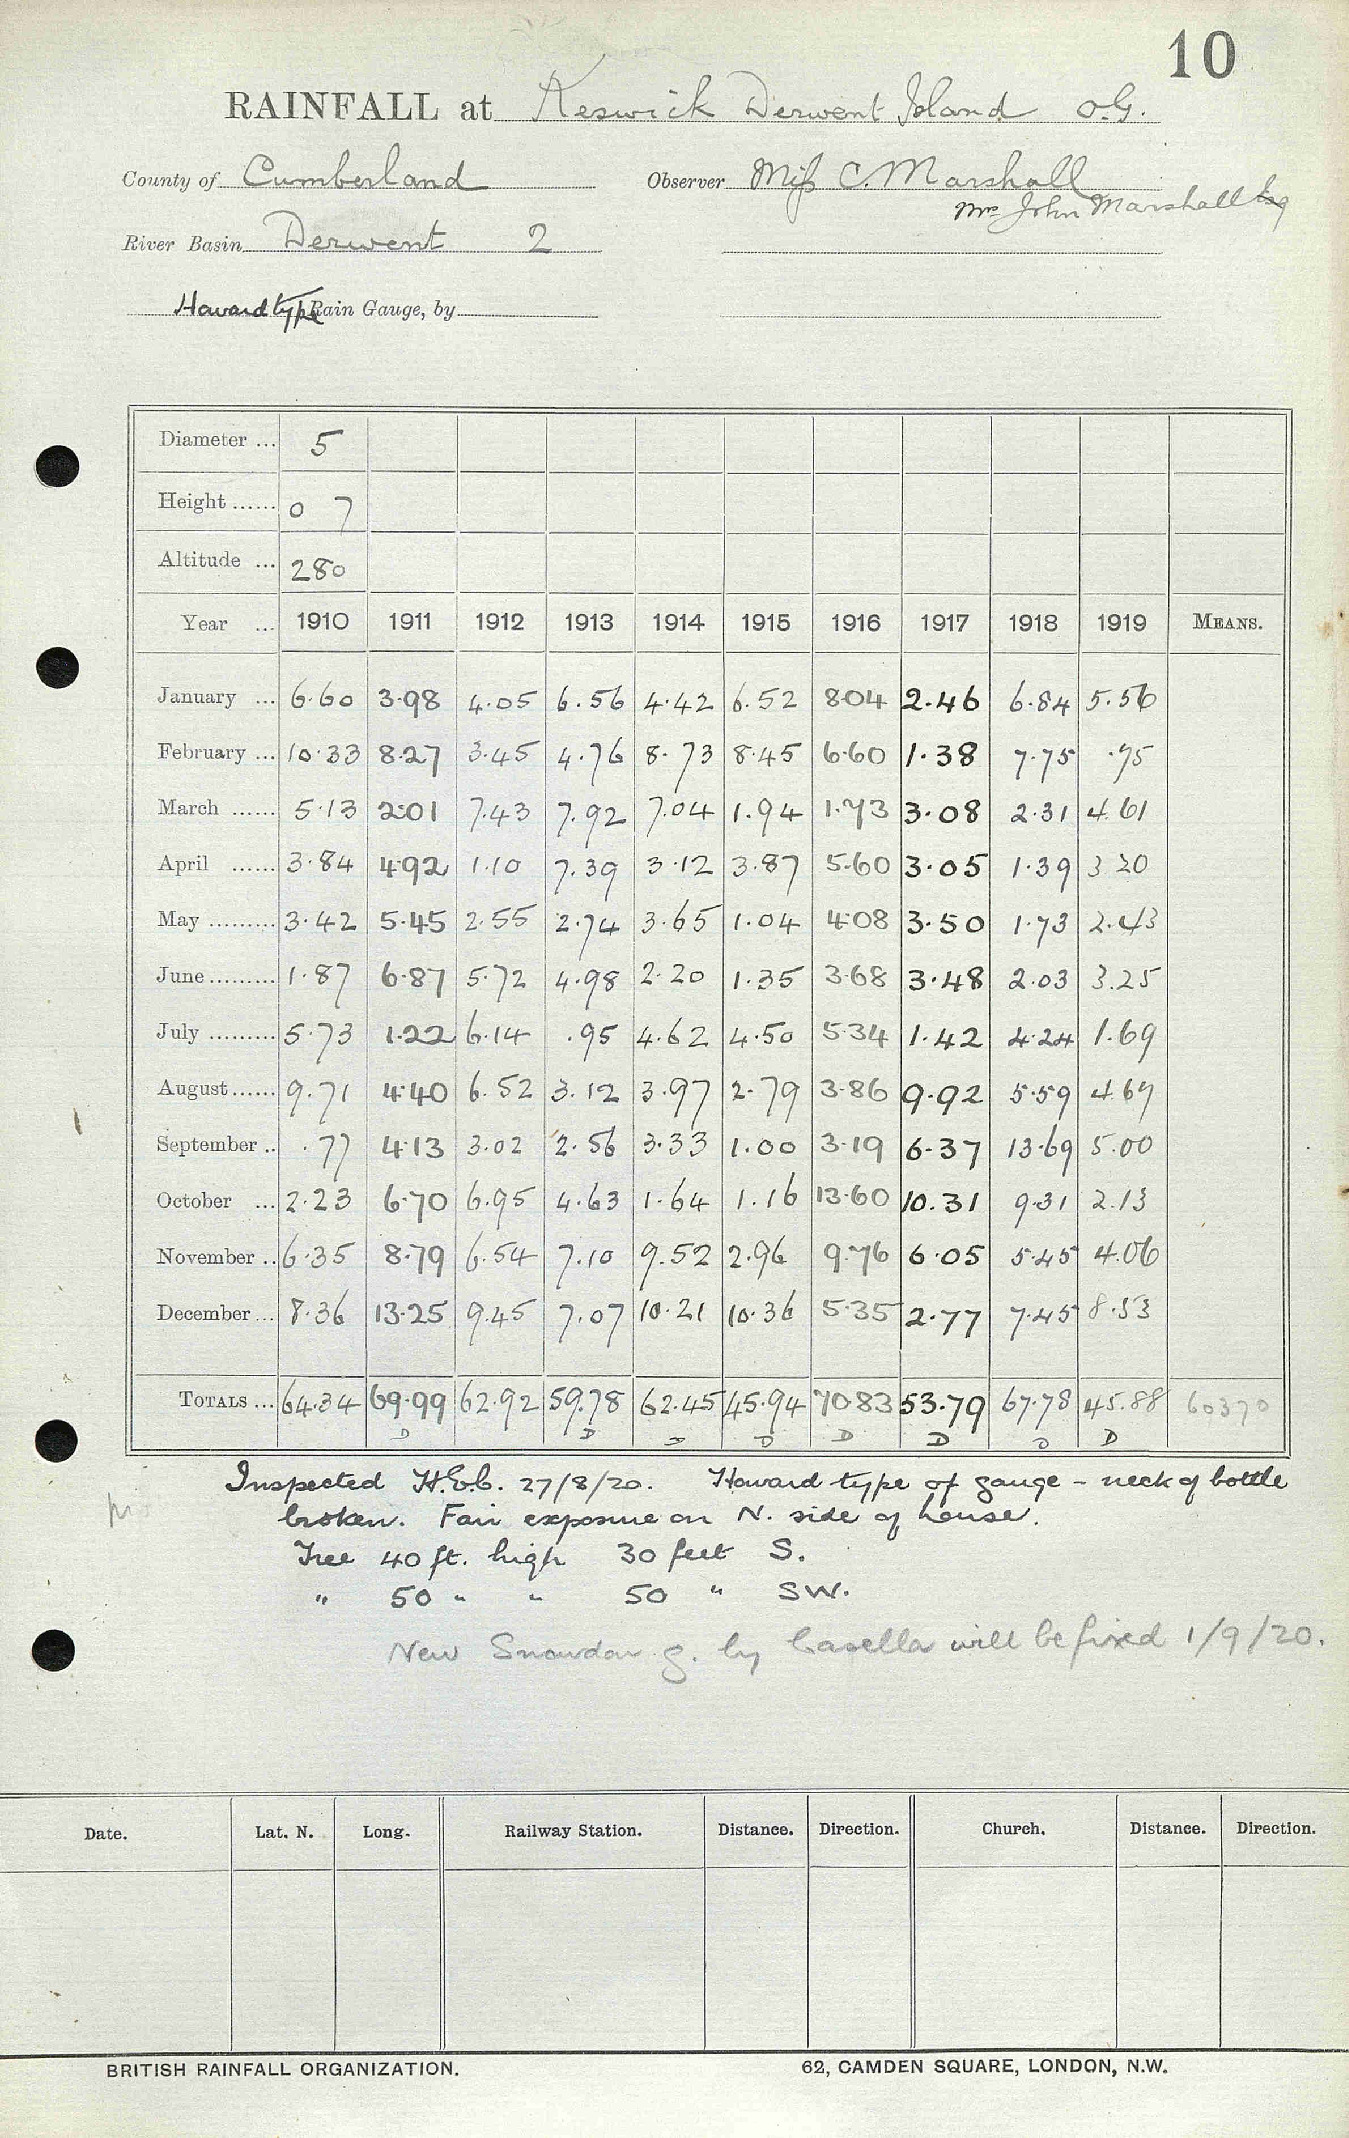 10
RAINFALL at Keswick Derwent Island O.G.
County of Cumberland Observer Miss C. Marshall
John Marshall Esq
River Basin Derwent 2
Howard type Rain Gauge, by
Diameter ... 5
Height ...... 0 7
Altitude ... 280
Year ... 1910 1911 1912 1913 1914 1915 1916 1917 1918 1919 MEANS.
January ... 6.60 3.98 4.05 6.56 4.42 6.52 8.04 2.46 6.84 5.56
February ... 10.33 8.27 3.45 4.76 8.73 8.45 6.60 1.38 7.75 .75
March ...... 5.13 2.01 7.43 7.92 7.04 1.94 1.73 3.08 2.31 4.61
April ...... 3.84 4.92 1.10 7.39 3.12 3.87 5.60 3.05 1.39 3.20
May ......... 3.42 5.45 2.55 2.74 3.65 1.04 4.08 3.50 1.73 2.43
June ......... 1.87 6.87 5.72 4.98 2.20 1.35 3.68 3.48 2.03 3.25
July ......... 5.73 1.22 6.14 .95 4.62 4.50 5.34 1.42 4.24 1.69
August ...... 9.71 4.40 6.52 3.12 3.97 2.79 3.86 9.92 5.59 4.67
September .. .77 4.13 3.02 2.56 3.33 1.00 3.19 6.37 13.69 5.00
October ... 2.23 6.70 6.95 4.63 1.64 1.16 13.60 10.31 9.31 2.13
November .. 6.35 8.79 6.54 7.10 9.52 2.96 9.76 6.05 5.45 4.06
December ... 8.36 13.25 9.45 7.07 10.21 10.36 5.35 2.77 7.45 8.53
TOTALS ... 64.34 69.99 62.92 59.78 62.45 45.94 70.83 53.79 67.78 45.88 60370
D D D D D D D D
Inspected H.E.C. 27/8/20. Howard type of gauge - neck of bottle
broken. Fair exposure on N. side of house.
Tree 40 ft. high 30 feet S.
" 50 " " 50 " SW.
New Snowdon g. by Casella will be fixed 1/9/20.
Date. Lat. N. Long. Railway Station. Distance. Direction. Church. Distance. Direction.
BRITISH RAINFALL ORGANIZATION. 62, CAMDEN SQUARE, LONDON, N.W.